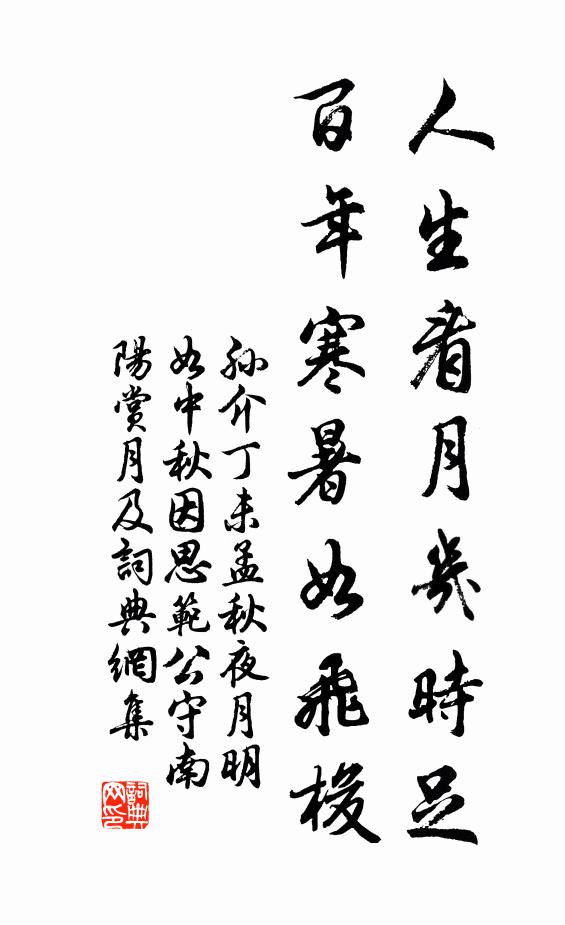 人生看月幾時足
百年寒暑如飛梭
孫介丁未孟秋夜月明
如中秋因思範公守南
陽賞月及詞典網集
詞典
网印